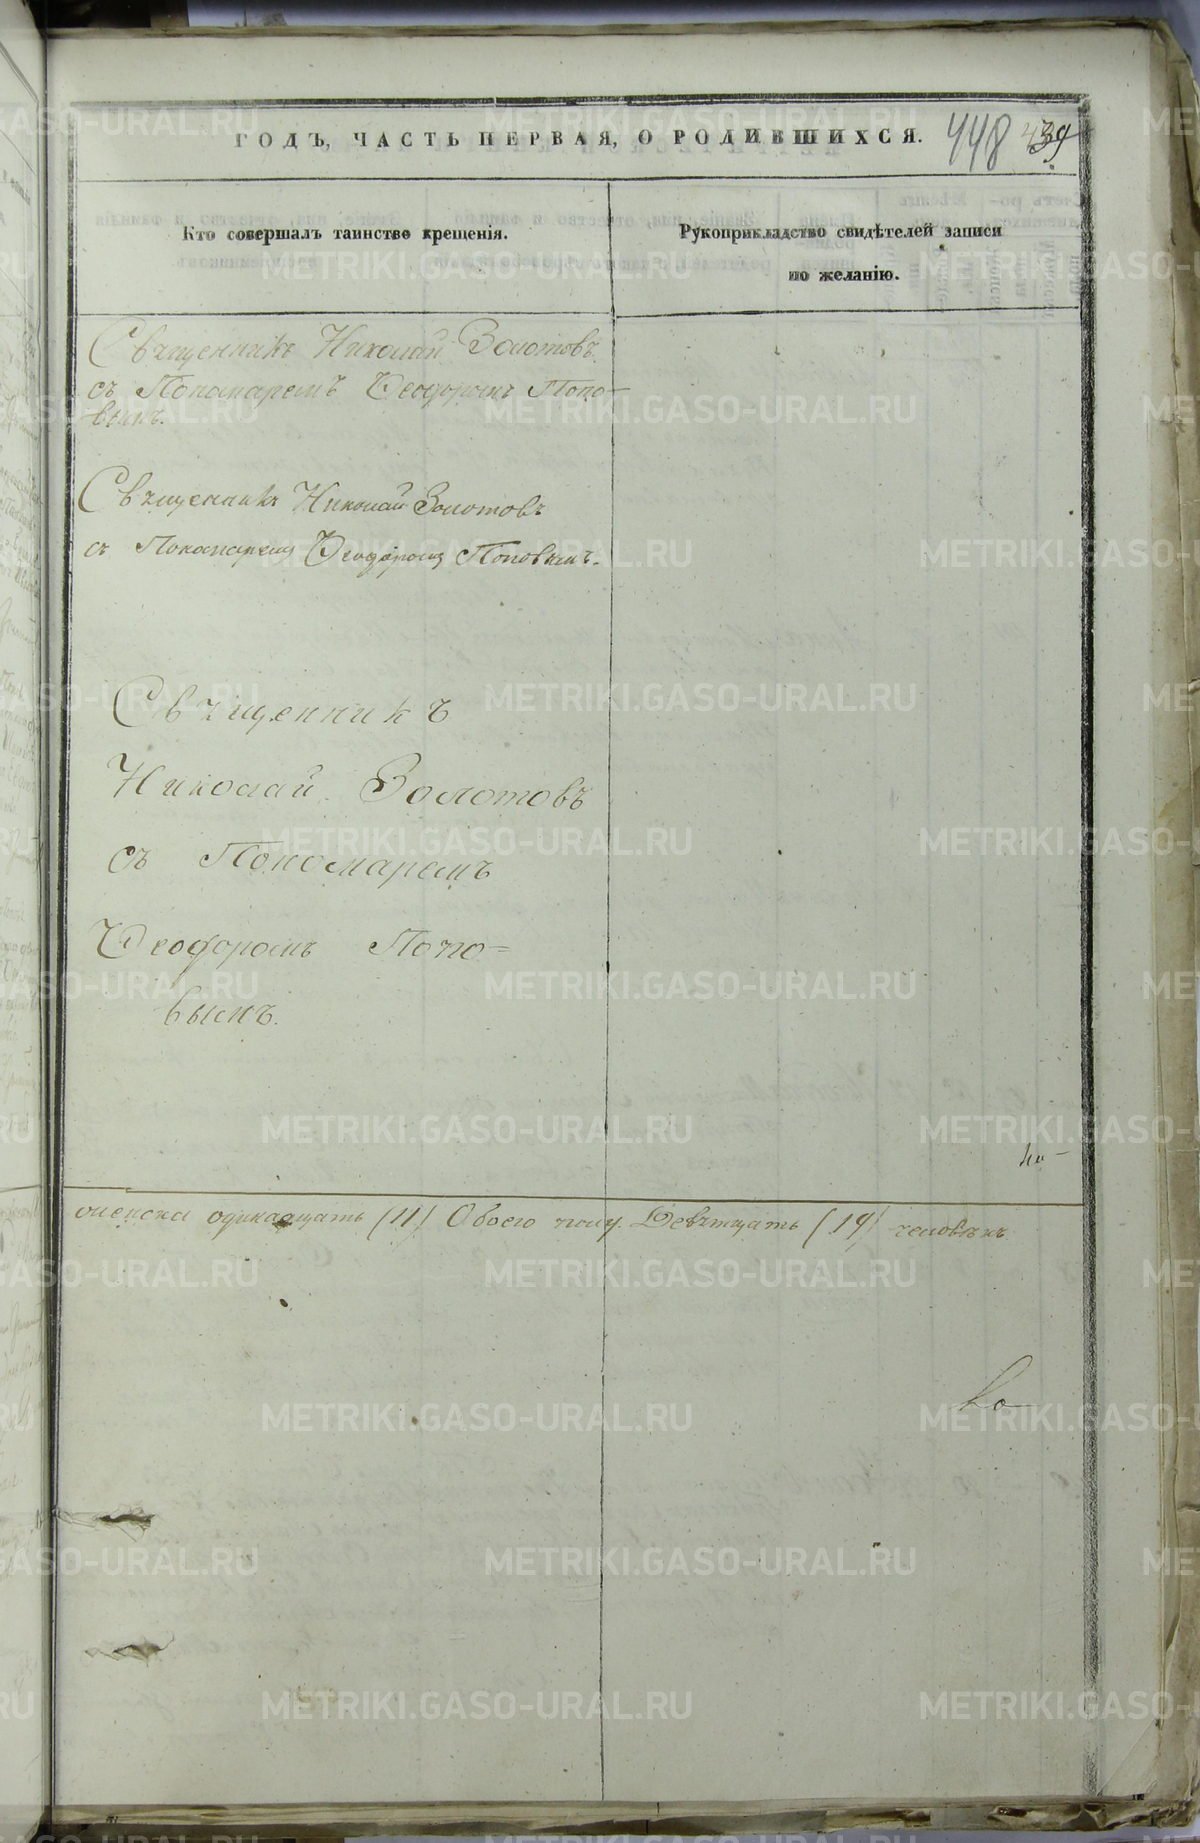 ГОДЪ, ЧАСТЬ ПЕРВАЯ, О РОДИВШИХСЯ.
448 439
Кто совершалъ таинство крещенія.
Рукоприкладство свидѣтелей записи
по желанію.
Священникъ Николай Золотовъ
съ Пономаремъ Ѳеодоромъ Попо-
вымъ.
Священникъ Николай Золотовъ
съ Пономаремъ Ѳеодоромъ Поповымъ.
Священникъ
Николай Золотовъ
съ Пономаремъ
Ѳеодоромъ Попо=
вымъ.
женска одинадцать (11) Обоего полу Девятнцать (19) человѣкъ
METRIKI.GASO-URAL.RU